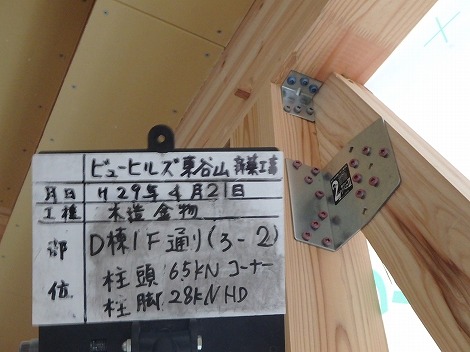 ビューヒルズ東谷山 新築工事
月日 H29年4月21日
工種 木造金物
部位 D棟1F通り(3-2)
柱頭 6.5KN コーナー
柱脚 28KN HD
2